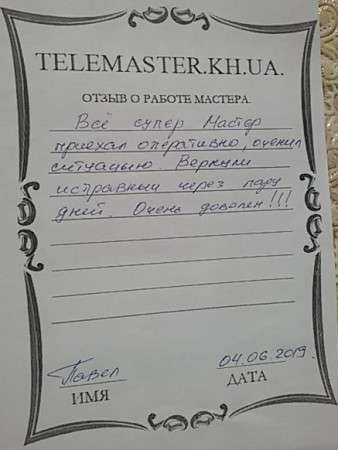 TELEMASTER.KH.UA.
ОТЗЫВ О РАБОТЕ МАСТЕРА.
Всё супер Мастер
приехал оперативно, оценил
ситуацыю. Вернули
исправный через пару
дней. Очень доволен!!!
Павел
04.06.2019.
ИМЯ
ДАТА